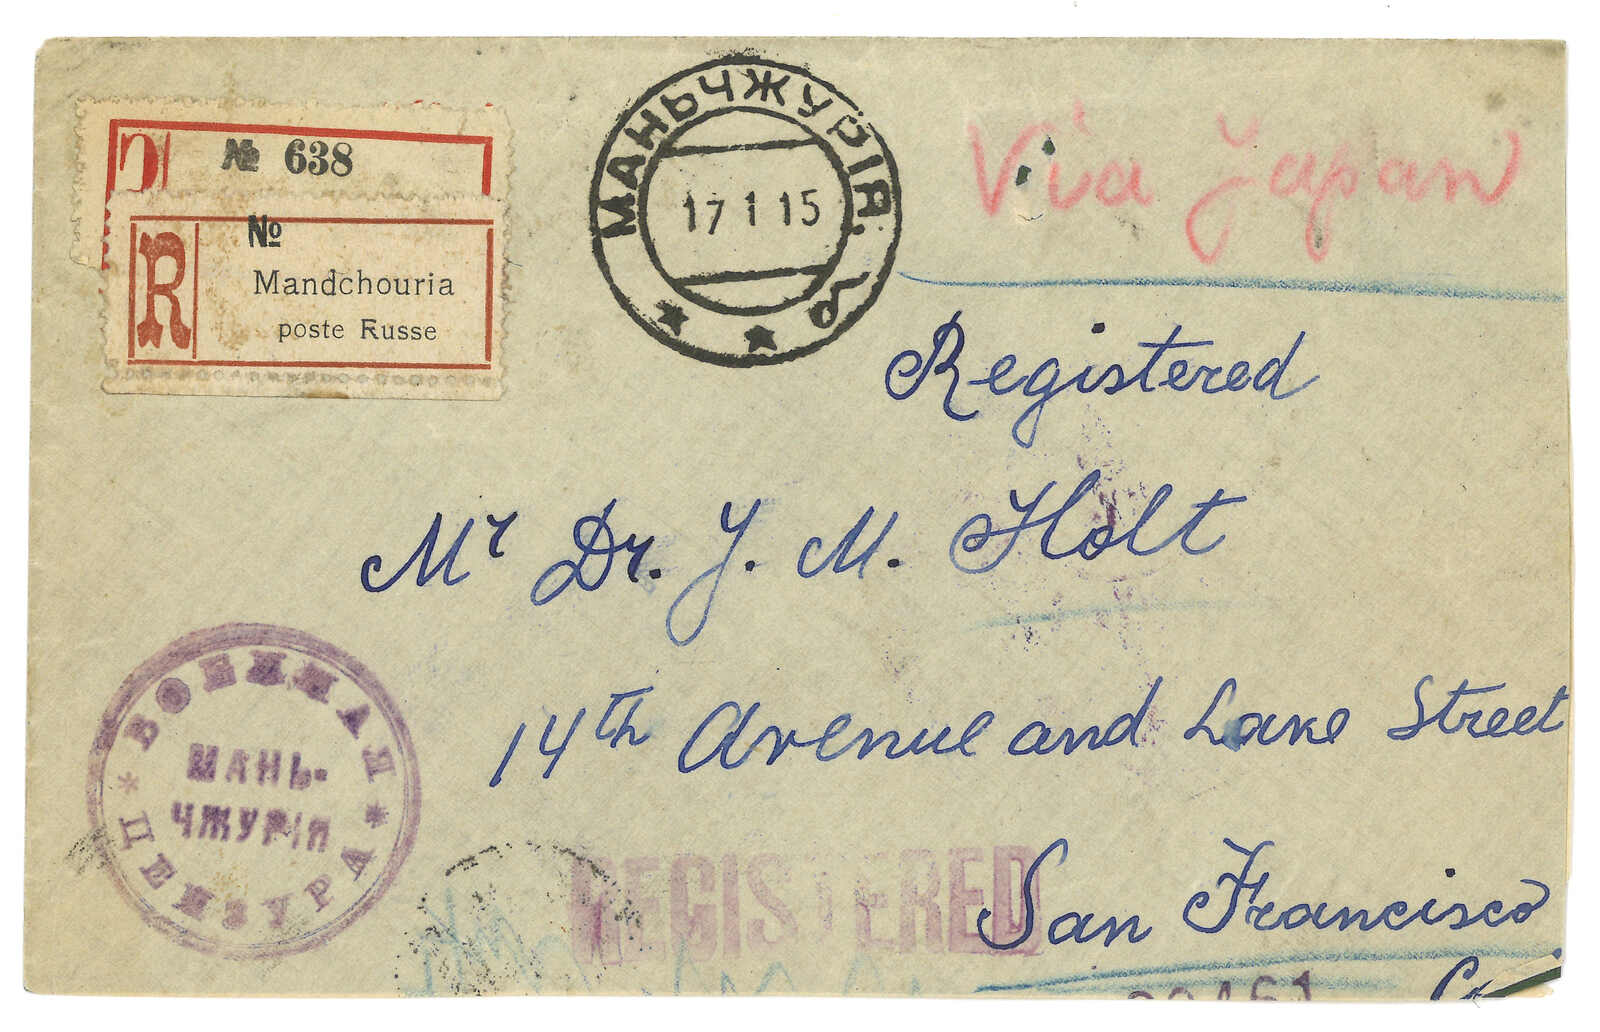 № 638
R
№
Mandchouria
poste Russe
МАНЬЧЖУРІЯ.
17 1 15
Via Japan
Registered
Mr Dr. J. M. Holt
14th Avenue and Lake Street
San Francisco
ВОЕННАЯ
МАНЬ-
ЧЖУРІЯ
ЦЕНЗУРА
REGISTERED